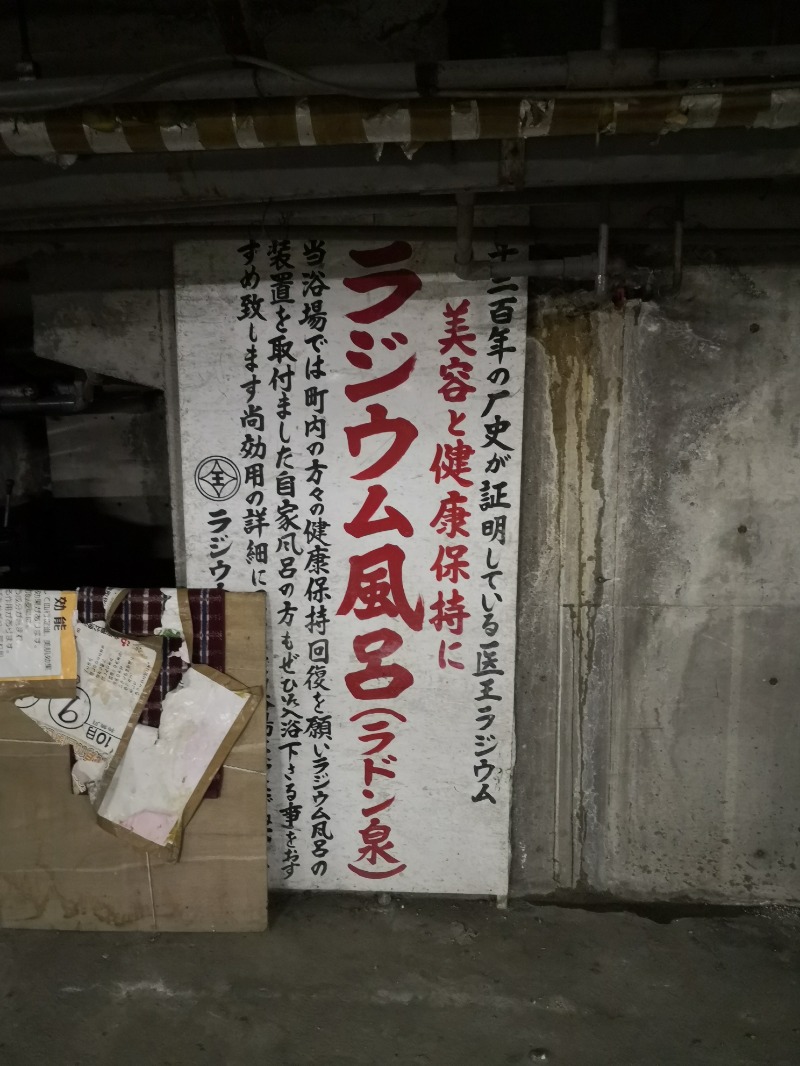 十二百年の厂史が証明している医王ラジウム
美容と健康保持に
ラジウム風呂(ラドン泉)
当浴場では町内の方々の健康保持回復を願いラジウム風呂の
装置を取付ました自家風呂の方もぜひ入浴下さる事をおす
すめ致します尚効用の詳細に
王
ラジウム
効能
9
10日